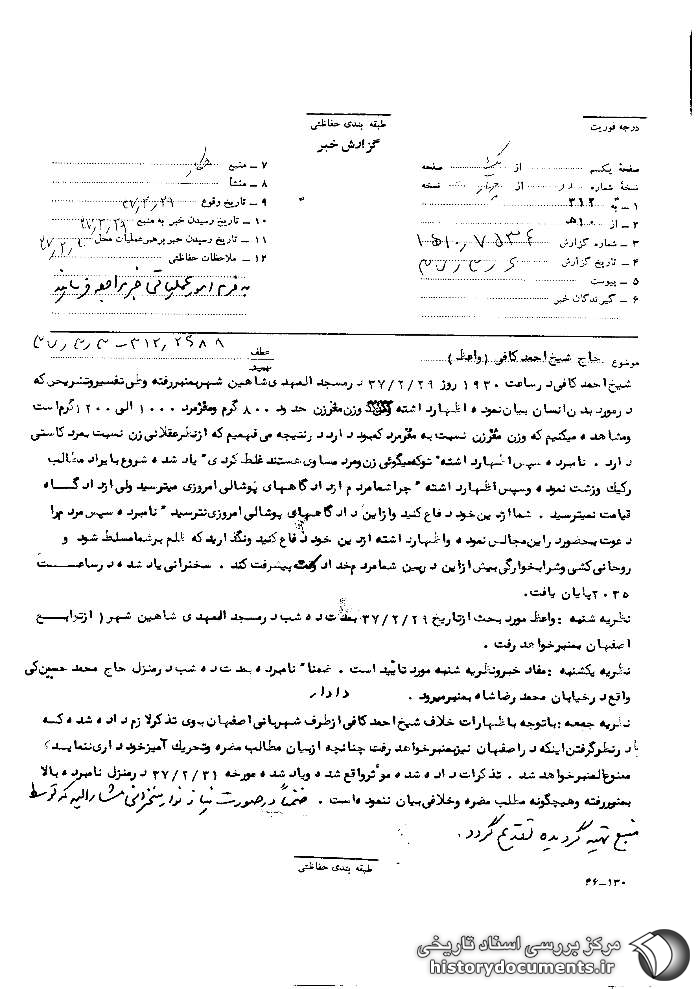 درجه فوریت
طبقه بندی حفاظتی
گزارش خبر
صفحه یکم از یک صفحه
نسخه شماره از نسخه
۱ – به ۳۱۲
۲ – از ۱۰ هـ
۳ – شماره گزارش
۴ – تاریخ گزارش
۵ – پیوست
۶ – گیرندگان خبر
۷ – منبع همکار
۸ – منشأ
۹ – تاریخ وقوع ۳۷٫۲٫۲۹
۱۰ – تاریخ رسیدن خبر به منبع ۳۷٫۲٫۲۹
۱۱ – تاریخ رسیدن خبر برهبر عملیات محل
۱۲ – ملاحظات حفاظتی
عطف
موضوع حاج شیخ احمد کافی (واعظ)
شیخ احمد کافی در ساعت ۱۹۳۰ روز ۳۷/۲/۲۹ در مسجد المهدی شاهین شهر بمنبر رفته وطی تفسیر وتشریحی که
در مورد بدن انسان بیان نموده اظهار داشته وزن مغز زن حدود ۸۰۰ گرم ومغز مرد ۱۰۰۰ الی ۱۲۰۰ گرم است
ومشاهده میکنیم که وزن مغز زن نسبت به مغز مرد کمبود دارد در نتیجه می فهمیم که از نظر عقلانی زن نسبت بمرد کاستی
دارد . نامبرده سپس اظهار داشته " توکه میگوئی زن ومرد مساوی هستند غلط کردی " یاد شده شروع با یراد مطالب
رکیک وزشت نموده وسپس اظهار داشته " چرا شما مردم از دادگاههای پوشالی امروزی میترسید ولی از دادگاه
قیامت نمیترسید . شما از دین خود دفاع کنید واز این دادگاههای پوشالی امروزی نترسید " نامبرده سپس مردم را
دعوت بحضور در این مجالس نموده واظهار داشته از دین خود دفاع کنید ونگذارید که ظلم بر شما مسلط شود و
روحانی کشی وشرابخوارگی بیش از این در بین شما مردم خداد وست پیشرفت کند . سخنرانی یاد شده در ساعت
۲۰۳۵ پایان یافت.
نظریه شنبه : واعظ مورد بحث از تاریخ ۳۷/۲/۲۹ بمدت ده شب در مسجد المهدی شاهین شهر ( از توابع
اصفهان بمنبر خواهد رفت .
نظریه یکشنبه : مفاد خبر ونظریه شنبه مورد تایید است . ضمنا" نامبرده بمدت ده شب در منزل حاج محمد حسین کی
واقع در خیابان محمد رضا شاه بمنبر میرود . دادار
نظریه جمعه : با توجه باظهارات خلاف شیخ احمد کافی از طرف شهربانی اصفهان بوی تذکر لازم داده شده که
با در نظر گرفتن اینکه در اصفهان نیز بمنبر خواهد رفت چنانچه از بیان مطالب مضره وتحریک آمیز خود داری ننماید
ممنوع المنبر خواهد شد . تذکرات داده شده موثر واقع شده ویاد شده مورخه ۳۷/۲/۳۱ در منزل نامبرده بالا
بمنبر رفته وهیچگونه مطلب مضره وخلافی بیان ننموده است . ضمناً در صورت نیاز نوار سخنرانی مشارالیه که توسط
منبع تهیه گردیده تقدیم گردد .
طبقه بندی حفاظتی
۴۶–۱۳۰
مرکز بررسی اسناد تاریخی
historydocuments.ir